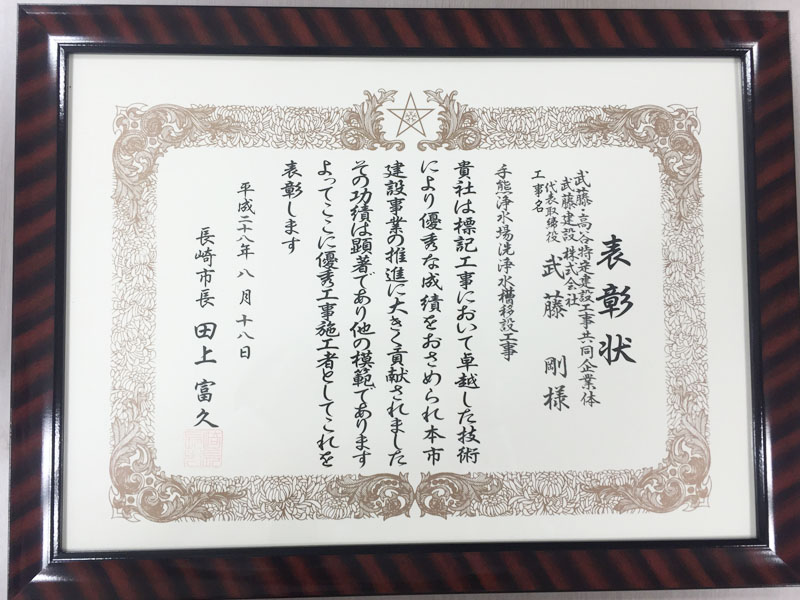 表彰状
武藤・高谷特定建設工事共同企業体
武藤建設株式会社
代表取締役 武藤 剛 様
工事名
手熊浄水場洗浄水槽移設工事
貴社は標記工事において卓越した技術
により優秀な成績をおさめられ本市
建設事業の推進に大きく貢献されました
その功績は顕著であり他の模範であります
よってここに優秀工事施工者としてこれを
表彰します
平成二十八年 八月 十八日
長崎市長 田上富久